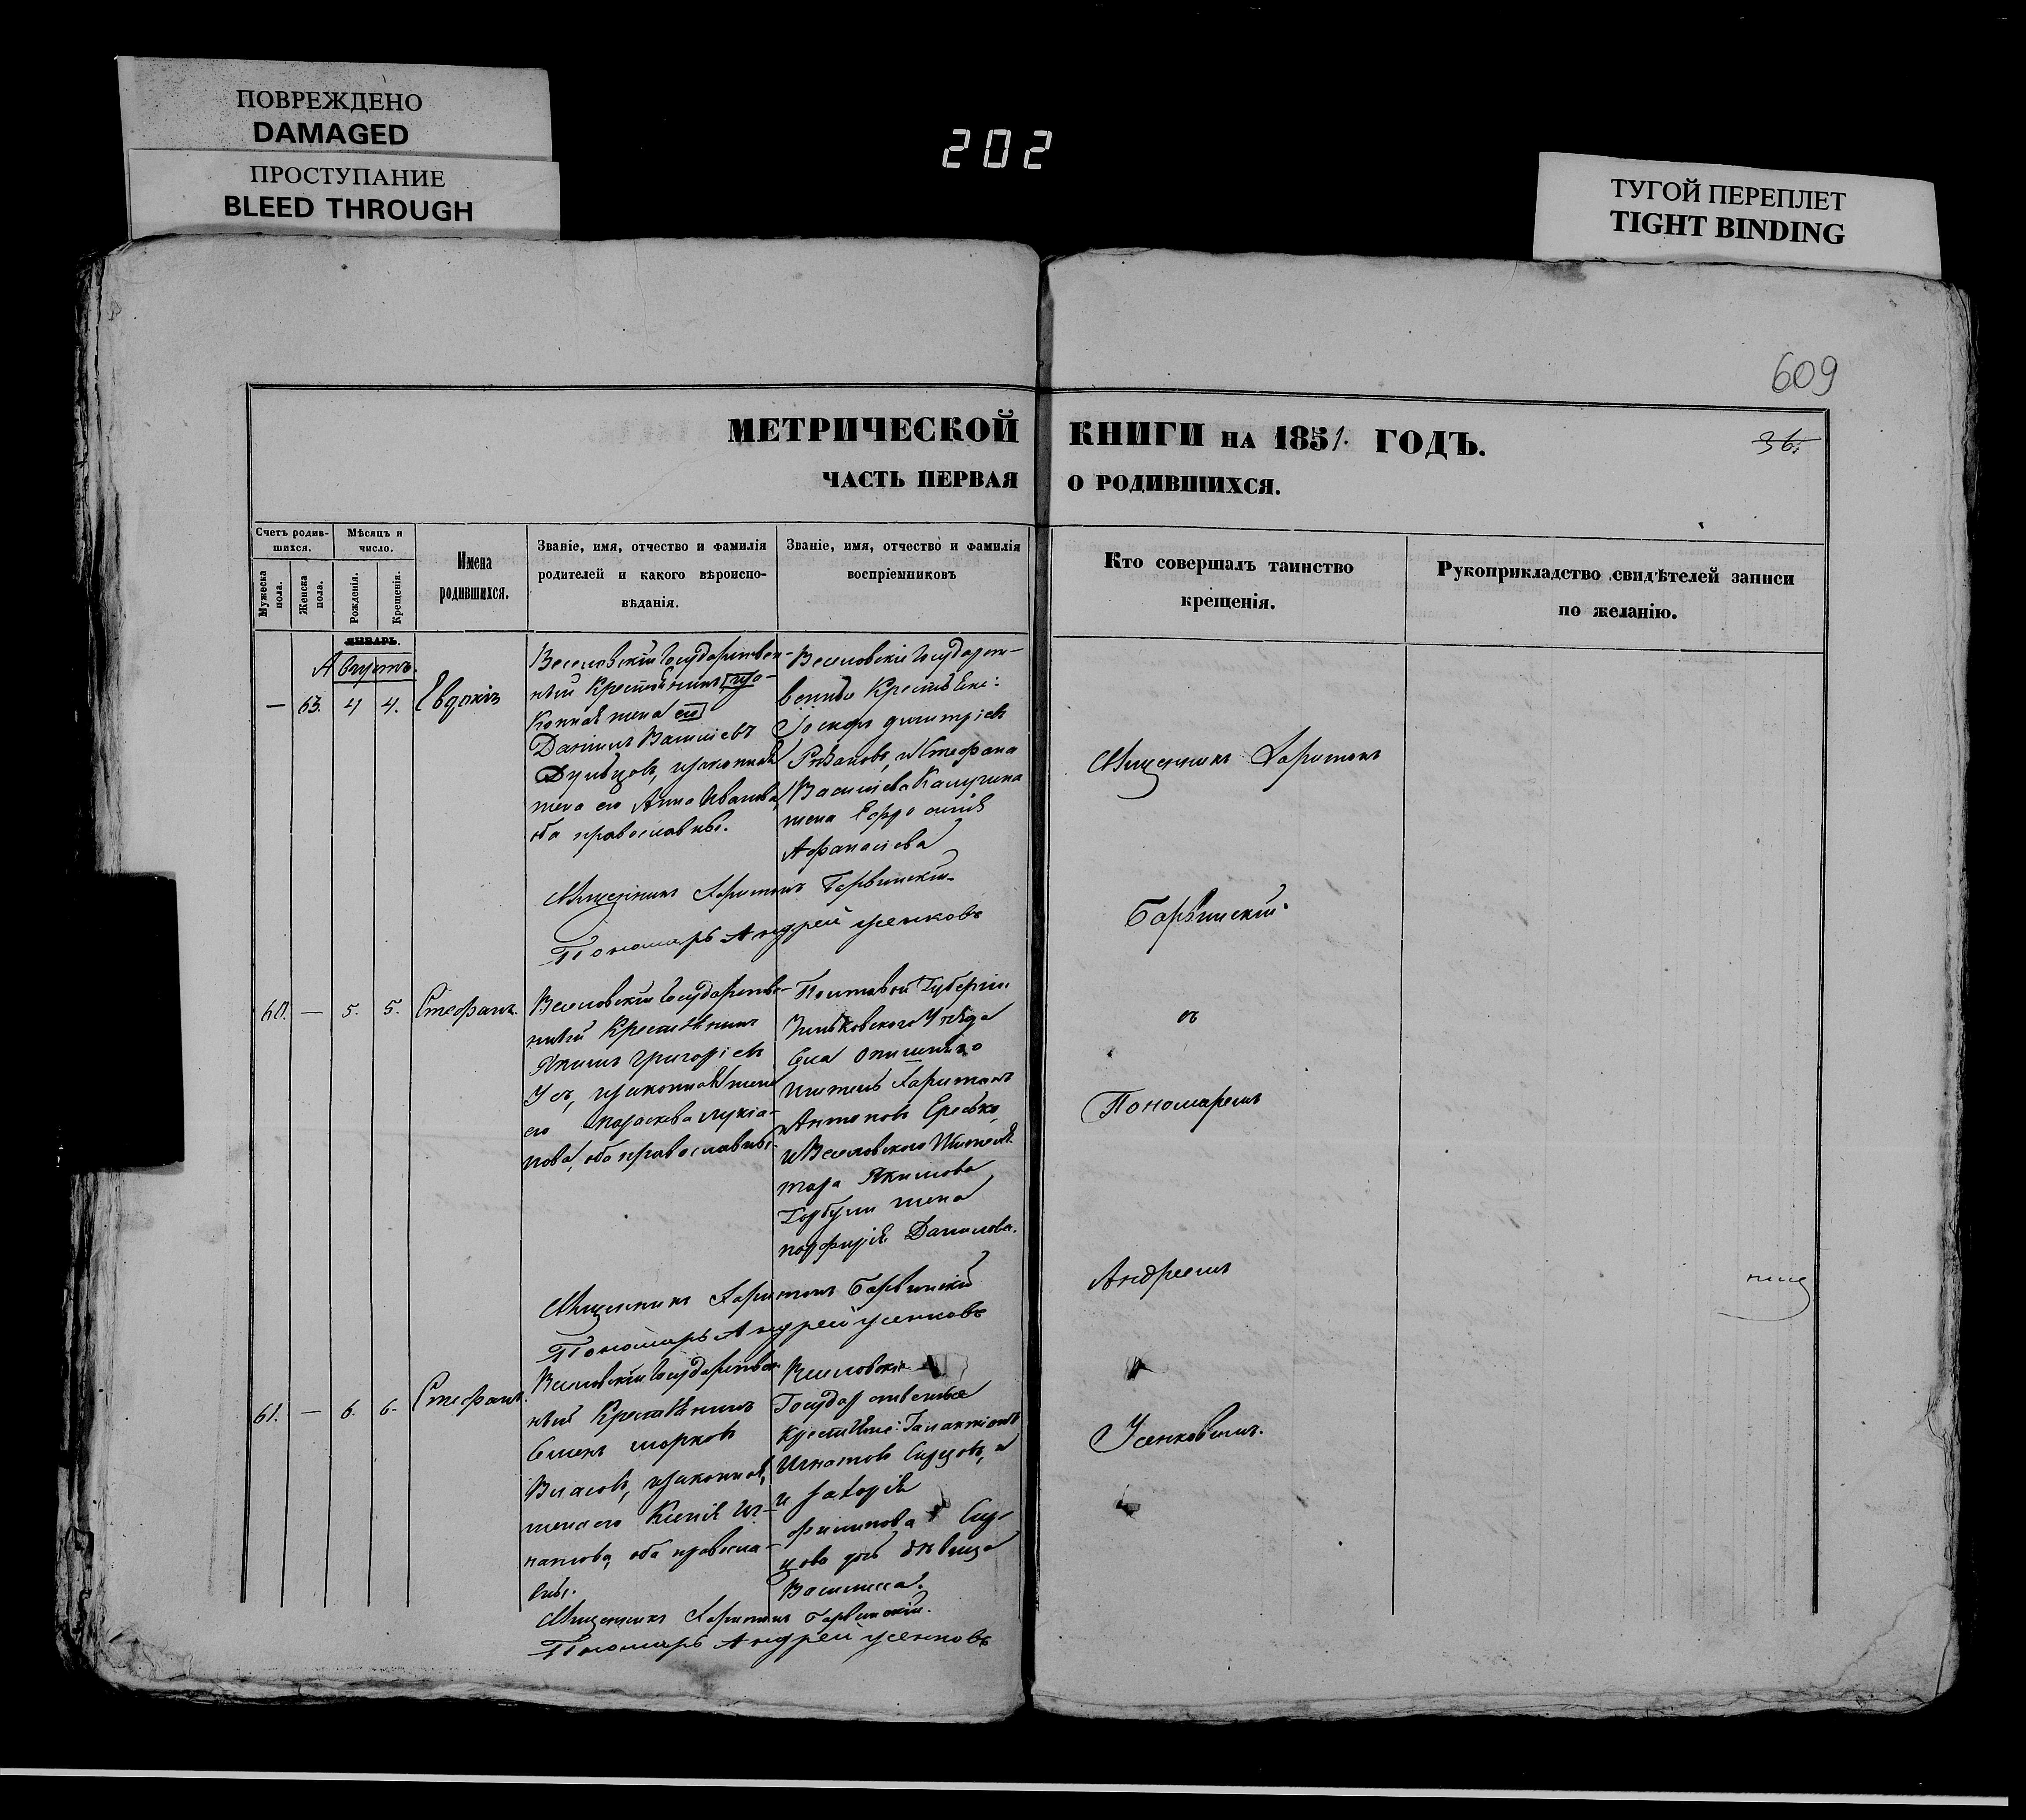 ПОВРЕЖДЕНО
DAMAGED
ПРОСТУПАНИЕ
BLEED THROUGH
202
ТУГОЙ ПЕРЕПЛЕТ
TIGHT BINDING
609
МЕТРИЧЕСКОЙ КНИГИ НА 1851. ГОДЪ.
36.
ЧАСТЬ ПЕРВАЯ О РОДИВШИХСЯ.
Счетъ родив-
шихся.
Мужеска пола.
Женска пола.
Мѣсяцъ и
число.
Рожденія.
Крещенія.
Имена
родившихся.
Званіе, имя, отчество и фамилія
родителей и какого вѣроиспо-
вѣданія.
Званіе, имя, отчество и фамилія
воспріемниковъ
Кто совершалъ таинство
крещенія.
Рукоприкладство свидѣтелей записи
по желанію.
ЯНВАРЬ.
Августъ.
— 63. 4 4. Евдокія
Веселовскій Государствен-
ный Крестьянинъ
жена
Даніилъ Василіевъ
законная
жена его Анна Иванова,
оба православны.
Веселовскіе Государст-
венные Крестьяне:
Іосифъ Димитріевъ
Рязановъ, и Стефана
Василіева Калугина
жена Евфросинія
Афанасіева
Священникъ Харитонъ Барвинскій.
Пономарь Андрей Усенковъ
60. — 5. 5. Стефанъ.
Веселовскій Государстве-
нный Крестьянинъ
Якимъ Григоріевъ
Усъ, законная жена
его Параскева Лукіа-
нова, оба православны.
Полтавской Губерніи
Зѣньковского Уѣзда
житель Харитонъ
Антоновъ
и Веселовского Жителя
Якимова
жена
Порфирія Данилова.
Священникъ Харитонъ Барвинскій
Пономарь Андрей Усенковъ
61. — 6. 6. Стефанъ.
Веселовскій Государствен-
ный Крестьянинъ
Семенъ Марковъ
Власовъ, законная
жена его Ксенія Иг-
натова, оба правосла-
вны.
Веселовскіе
Государственные
Крестьяне: Галактіонъ
Игнатовъ
и
филипова
дочь дѣвица
Василиса.
Священникъ Харитонъ Барвинскій.
Пономарь Андрей Усенковъ
Священникъ Харитонъ
Барвинскій
съ
Пономаремъ
Андреемъ
Усенковымъ.